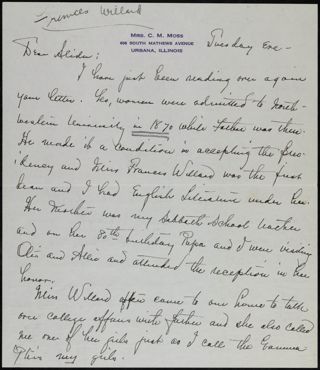 Frances Willard
MRS. C. M. MOSS
606 SOUTH MATHEWS AVENUE
URBANA, ILLINOIS
Tuesday Eve-
Dear
I have just been reading over again
your letter. Yes, women were admitted to North-
western University in 1870 while Father was there.
He made it a condition in accepting the Pres-
idency and Miss Frances Willard was the first
dean and I had English Literature under her.
Her Mother was my Sabbath School teacher
and on her 80th birthday Papa and I were visiting
and attended the reception in her
honor.
Miss Willard often came to our home to talk
over college affairs with Father and she also called
me one of her girls just as I call the Gamma
Phis my girls.